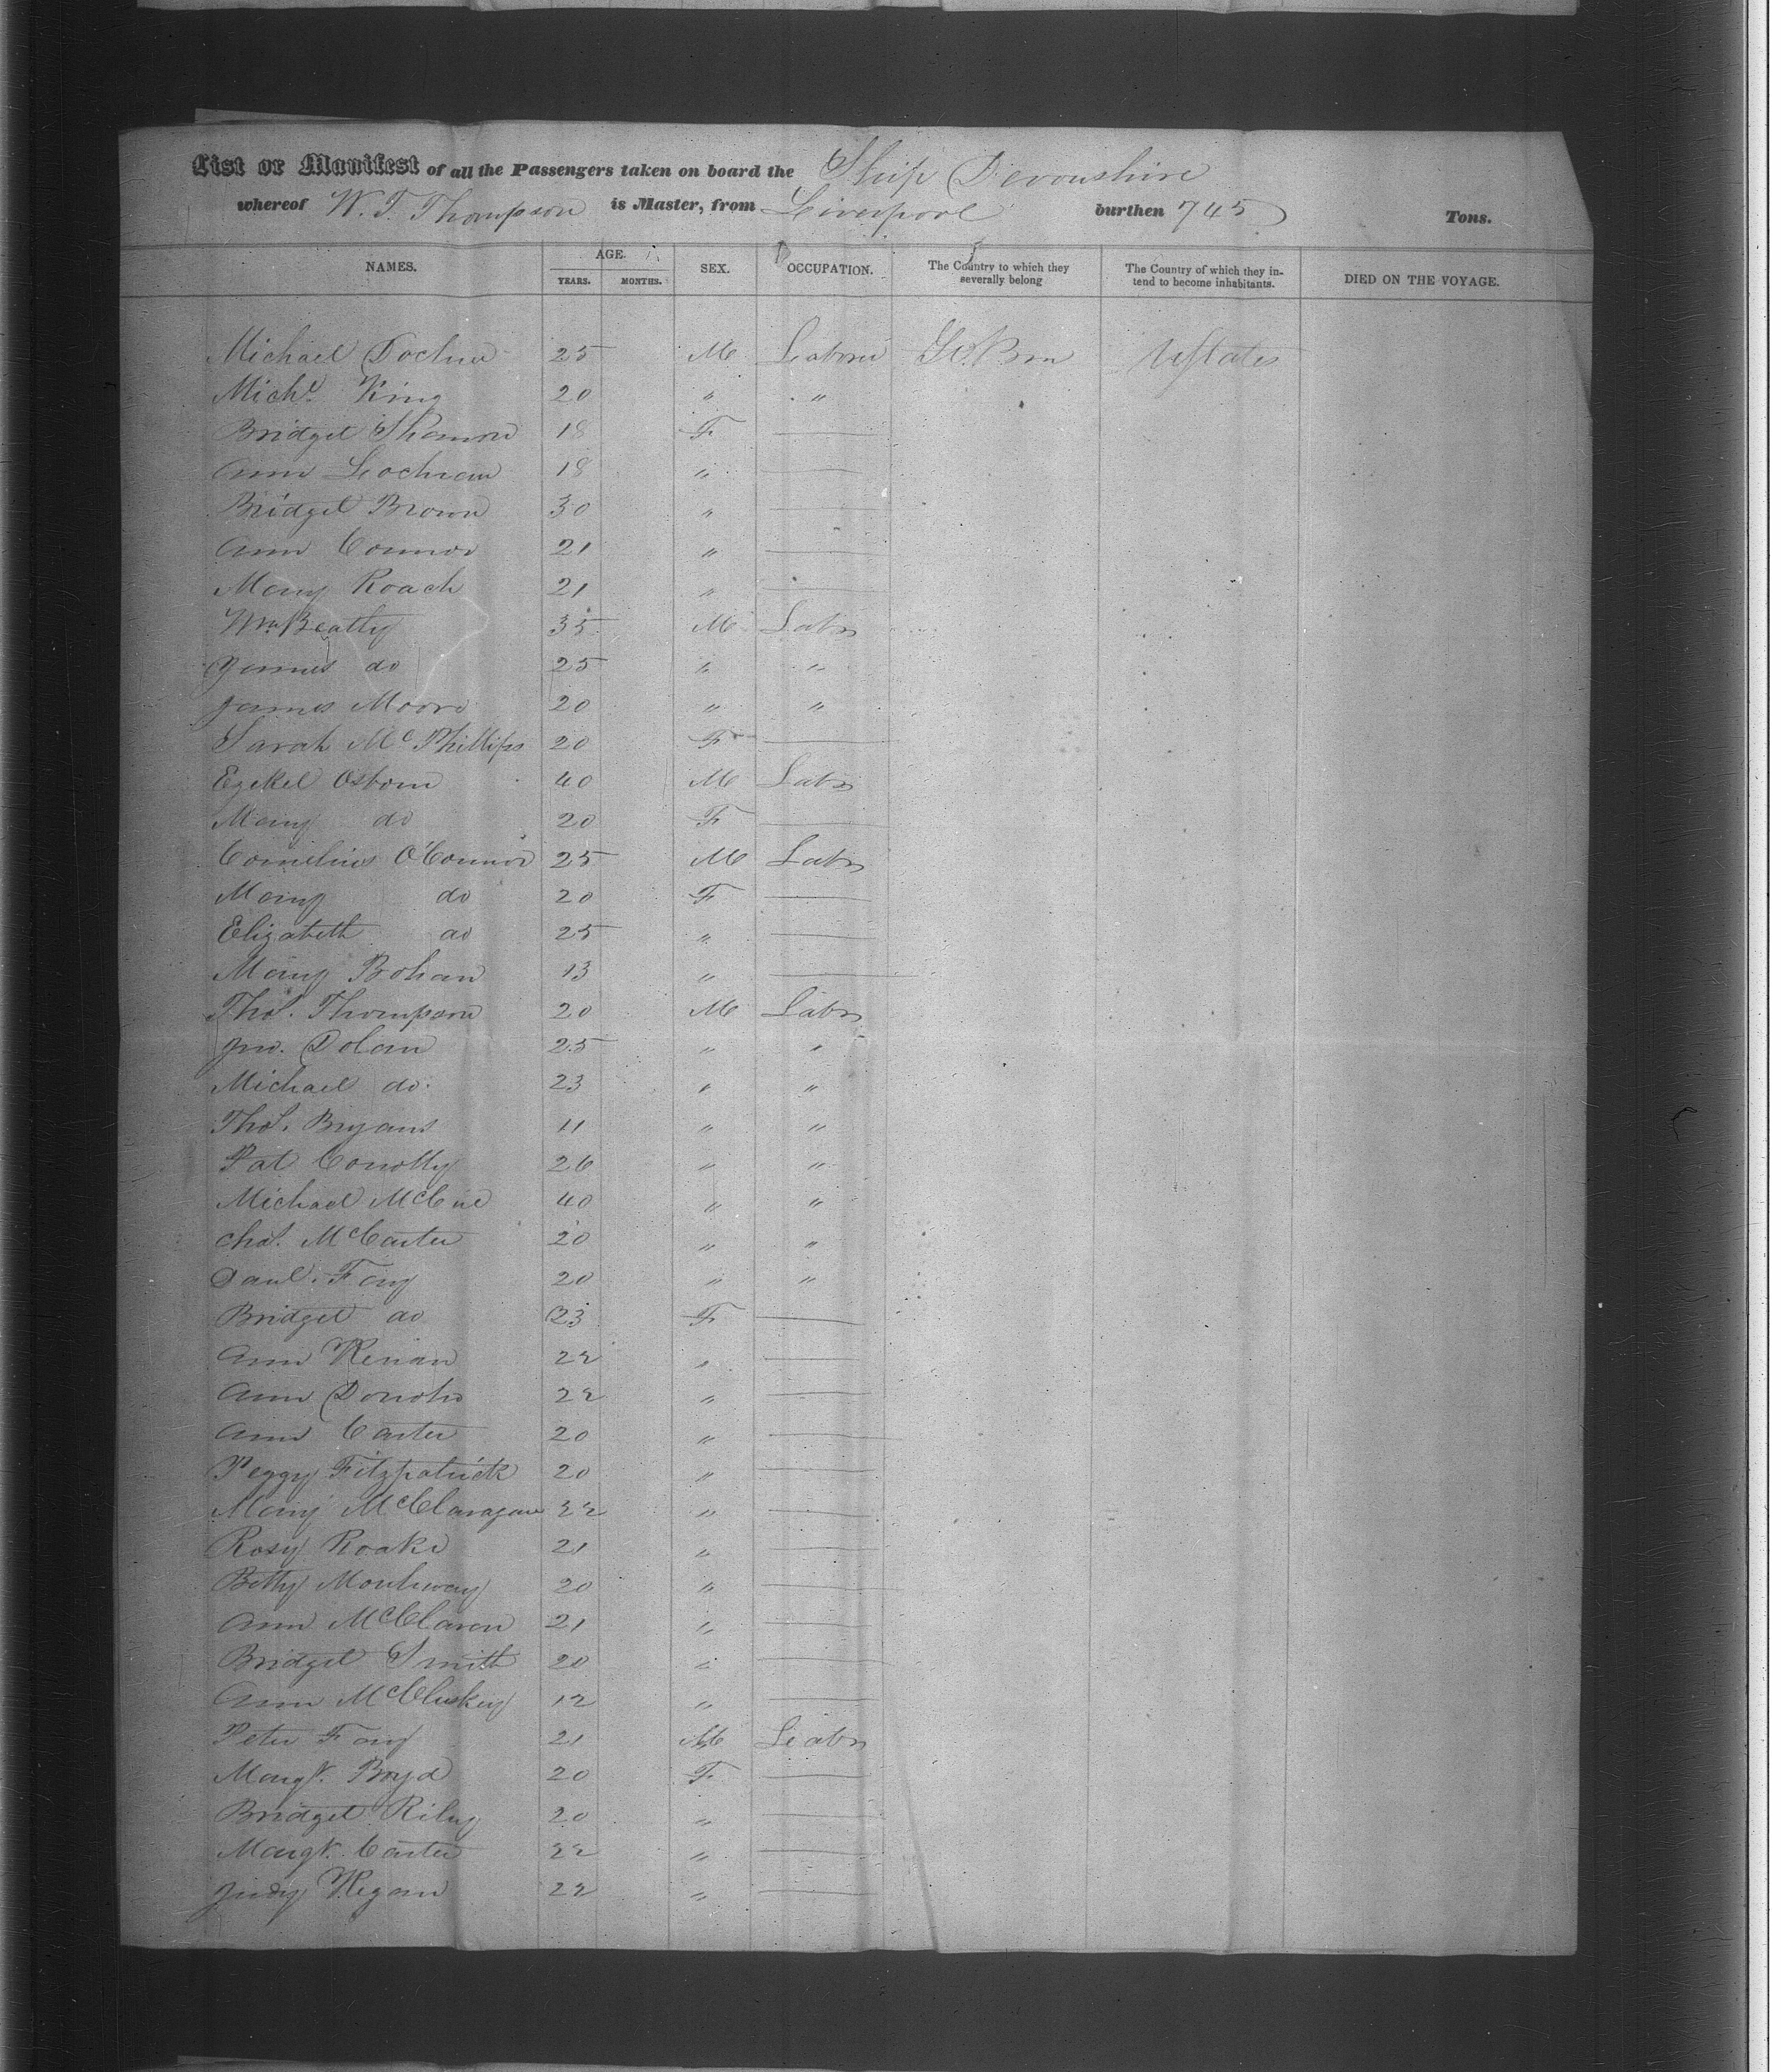 List or Manifest of all the Passengers taken on board the Ship Devonshire
whereof W. T. Thompson is Master, from Liverpool burthen 745 Tons.
NAMES. AGE. YEARS. MONTHS. SEX. OCCUPATION. The Country to which they severally belong The Country of which they intend to become inhabitants. DIED ON THE VOYAGE.
Michael 25 M Laborer Gt. Brn UStates
Michl King 20 " "
Bridget Shannon 18 F
Ann Lochran 18 "
Bridget Brown 30 "
Ann Connor 21 "
Mary Roach 21 "
Wm Beatty 35 M Labr
James do 25 " "
James Moore 20 " "
Sarah McPhillips 20 F
Ezekel Osborn 40 M Labr
Mary do 20 F
Cornelius O'Connor 25 M Labr
Mary do 20 F
Elizabeth do 25 "
Mary Bohan 13 "
Thos. Thompson 20 M Labr
Jno. Dolan 25 " "
Michael do. 23 " "
Thos. Bryans 11 " "
Pat Conolly 26 " "
Michael McCue 40 " "
Chas. McCarter 20 " "
Danl. Fay 20 " "
Bridget do 23 F
Ann Kenan 22 "
Ann Donoho 22 "
Ann Carter 20 "
Peggy Fitzpatrick 20 "
Mary McClanagan 22 "
Rosy Roake 21 "
Betty 20 "
Ann McClaren 21 "
Bridget Smith 20 "
Ann McCluskey 12 "
Peter Fay 21 M Labr
Margt. Boyd 20 F
Bridget Riley 20 "
Margt. Carter 22 "
Judy Kegan 22 "